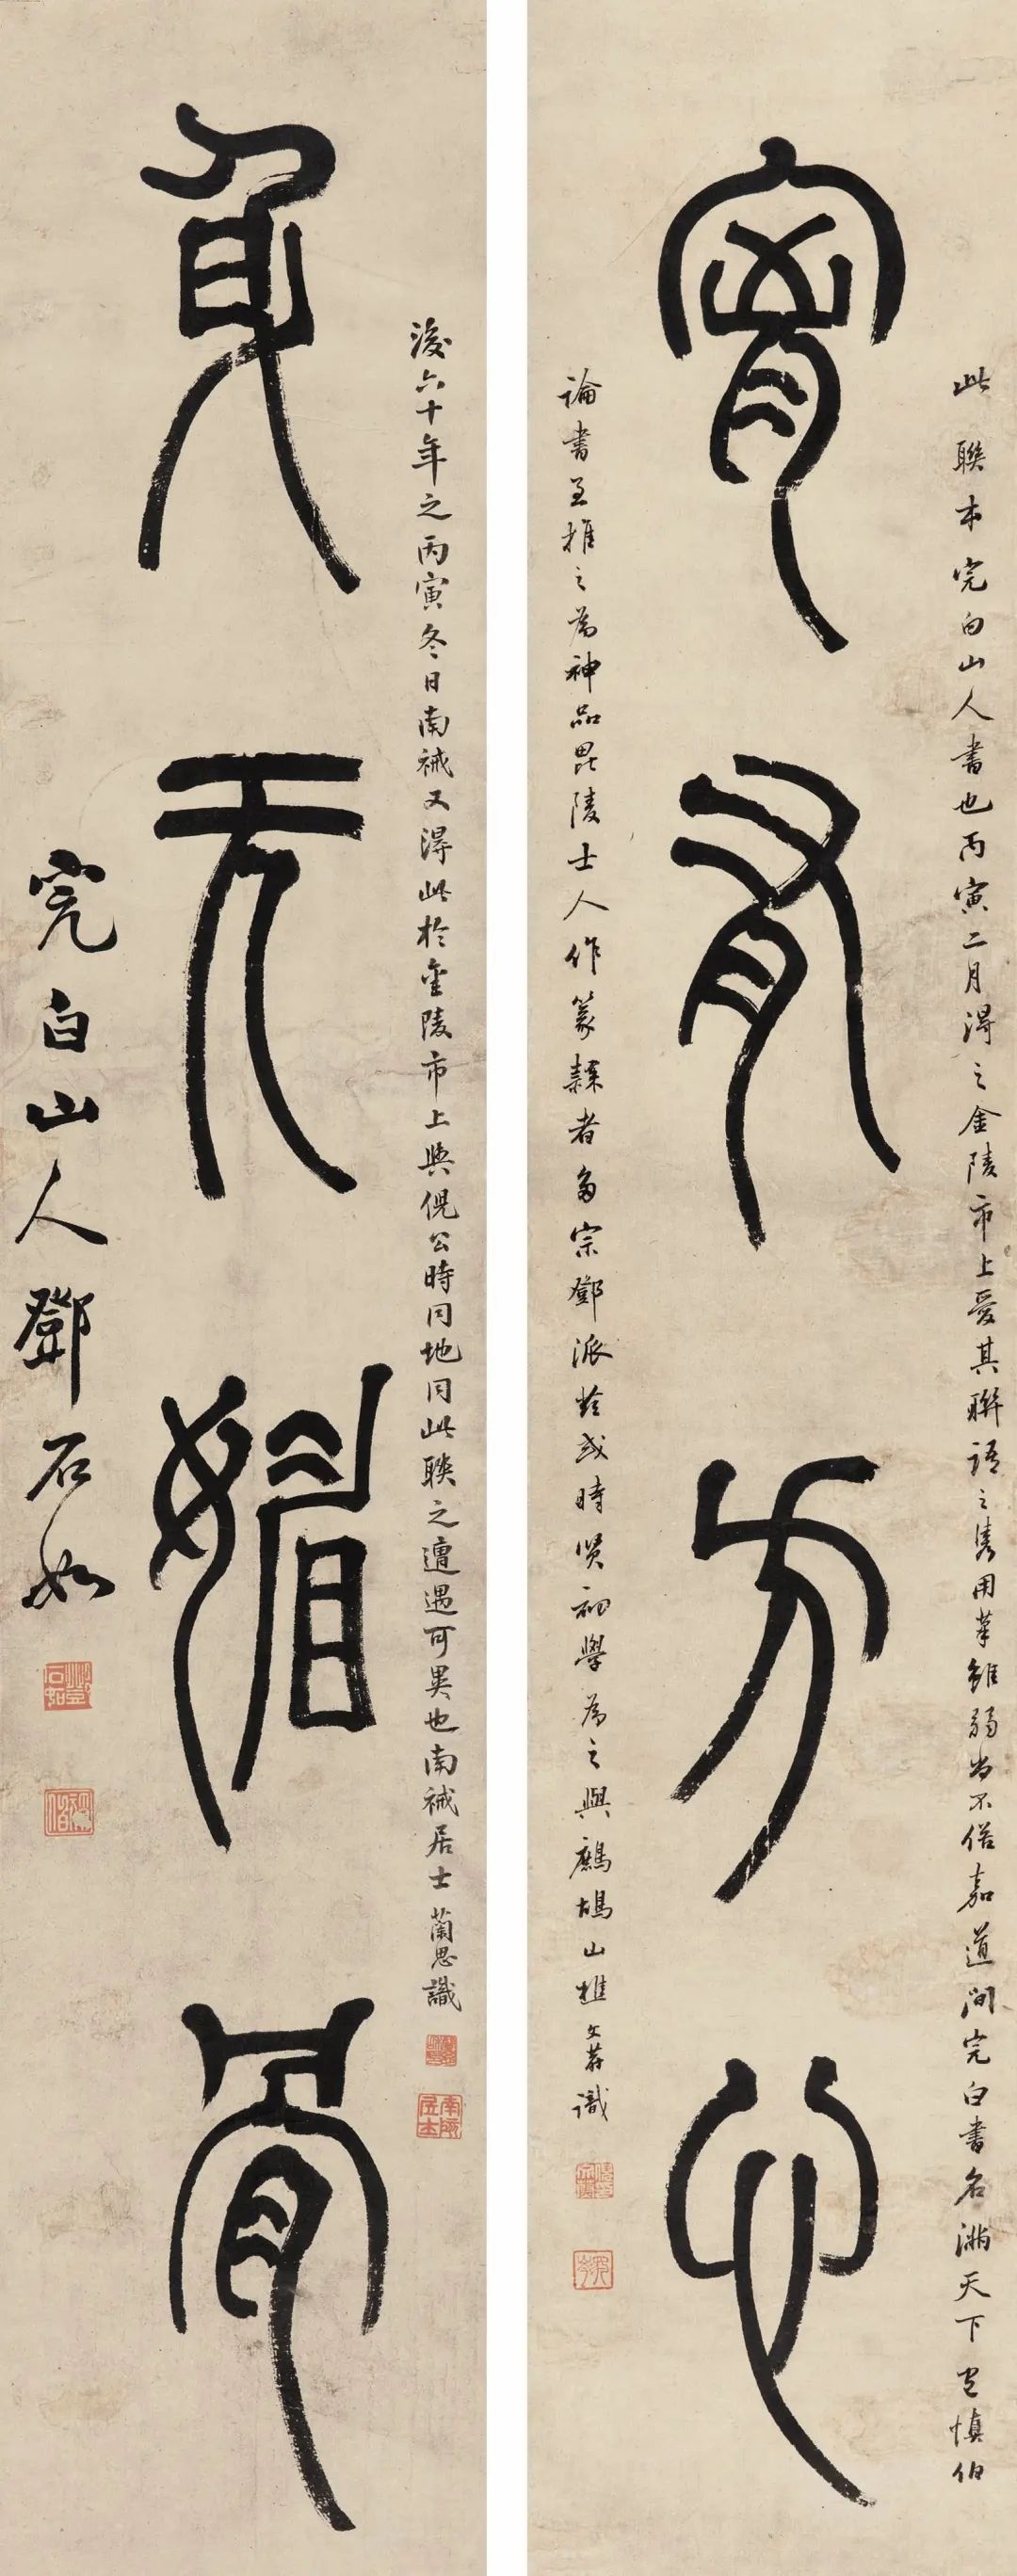 此聯本完白山人書也丙寅二月得之金陵市上愛其聯語之雋用筆雖弱尚不俗嘉道間完白書名滿天下包慎伯
寧有方心
論書至推之為神品毘陵士人作篆隸者多宗鄧派
初學為之與鷓鴣山樵文蔚識
後六十年之丙寅冬日南祴又得此於金陵市上與倪公時同地同此聯之遭遇可異也南祴居士蘭思識
身无媚骨
完白山人鄧石如
鄧石如